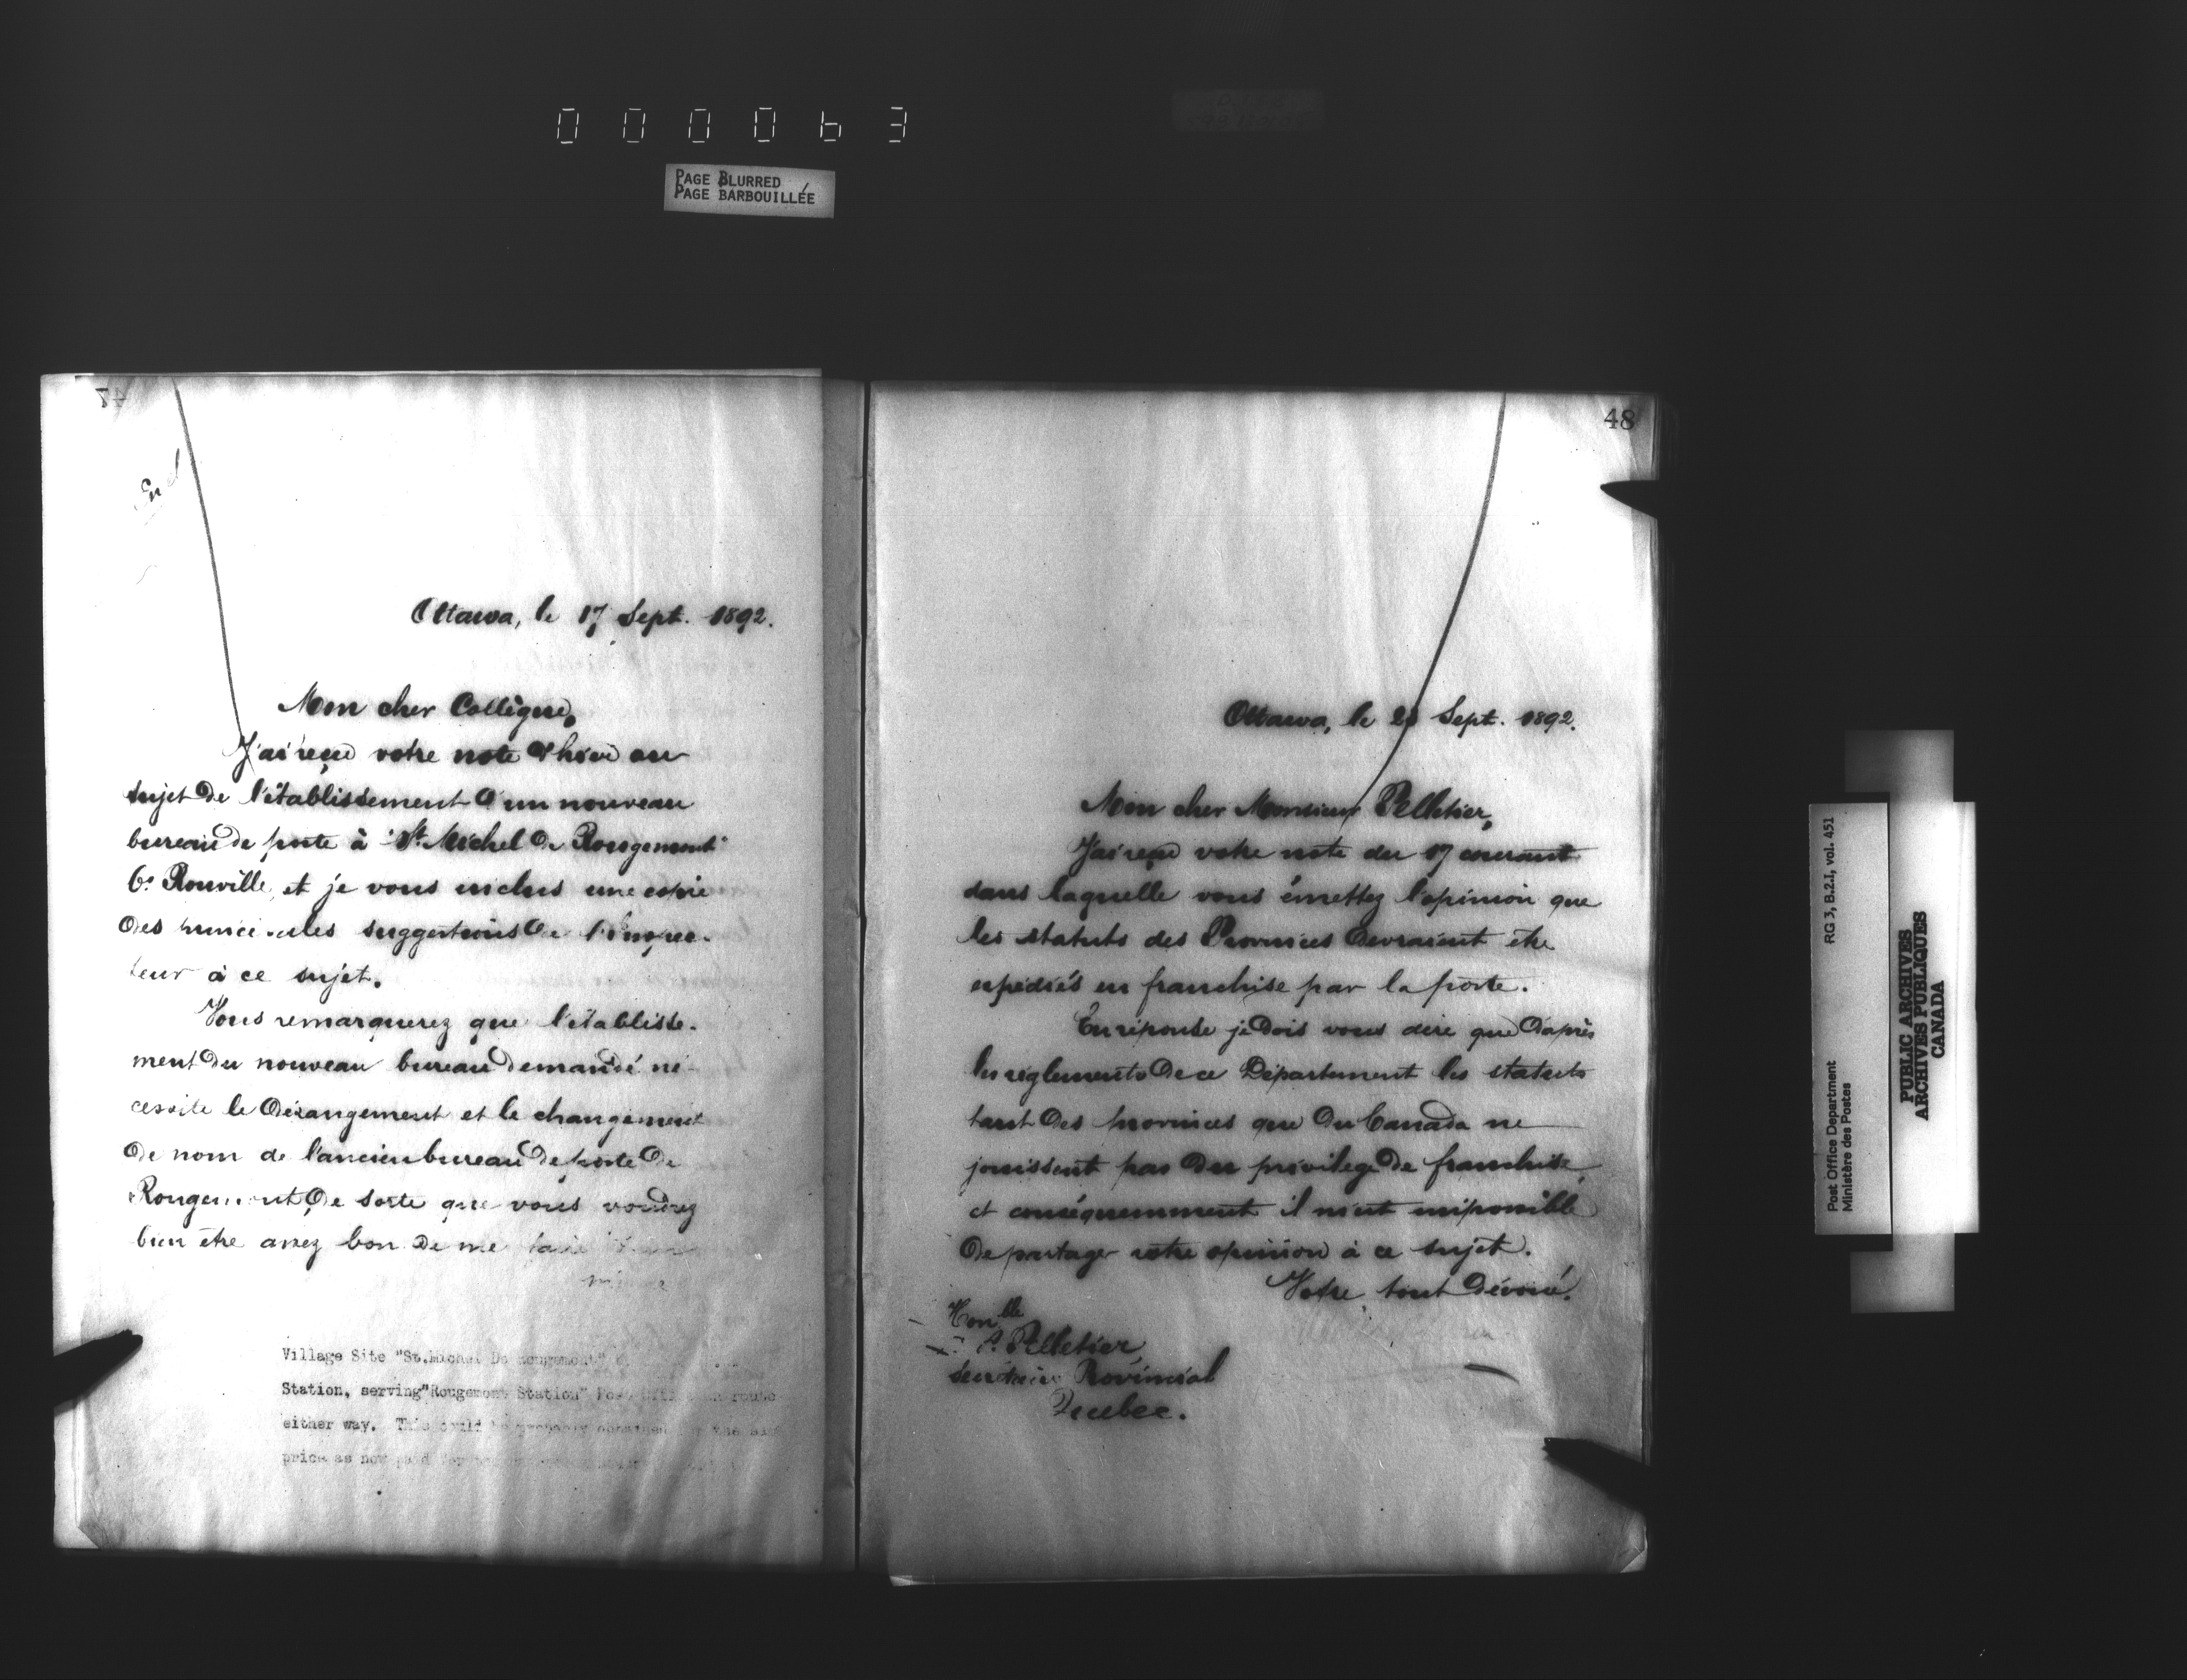 000063
PAGE BLURRED
PAGE BARBOUILLÉE
47
Encl
Ottawa, le 17 Sept. 1892.
Mon cher Collègue,
J'ai reçu votre note d'hier au
sujet de l'établissement d'un nouveau
bureau de poste à "St. Michel de Rougemont"
Co. Rouville, et je vous inclus une copie
des principales suggestions de l'Inspec-
teur à ce sujet.
Vous remarquerez que l'établisse-
ment du nouveau bureau demandé né-
cessite le dérangement et le changement
de nom de l'ancien bureau de poste de
Rougemont, de sorte que vous voudrez
bien être assez bon de me faire
Village Site "St. Michel De Rougemont"
Station, serving "Rougemont Station" Post Office en route
either way. This could be probably obtained
price as now paid
48
Ottawa, le Sept. 1892.
Mon cher Monsieur Pelletier,
J'ai reçu votre note du 17 courant
dans laquelle vous émettez l'opinion que
les statuts des Provinces devraient être
expédiés en franchise par la poste.
En réponse je dois vous dire que d'après
les règlements de ce Département les statuts
tant des provinces que du Canada ne
jouissent pas du privilege de franchise,
et conséquemment il m'est impossible
de partager votre opinion à ce sujet.
Votre tout dévoué.
Honble
Pelletier,
Secrétaire Provincial
Quebec.
Post Office Department RG 3, B.2.I, vol. 451
Ministère des Postes
PUBLIC ARCHIVES
ARCHIVES PUBLIQUES
CANADA